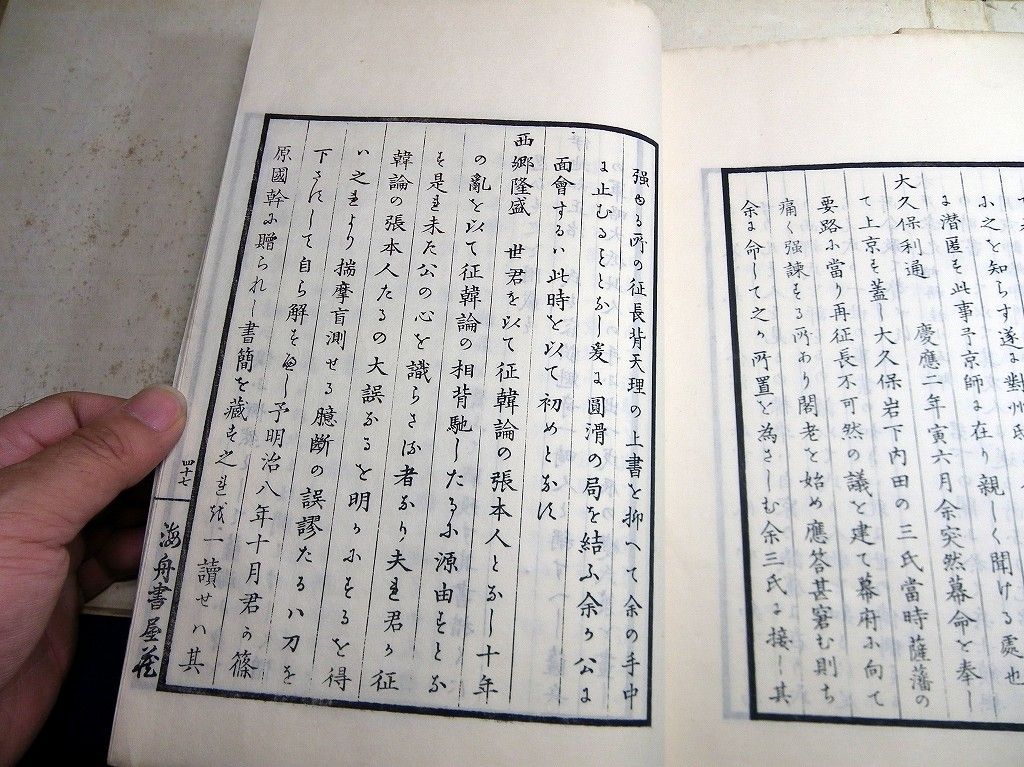 に之を知らす遂に對州邸
に潜匿す此事予京師に在り親しく聞ける處也
大久保利通　慶應二年寅六月余突然幕命を奉し
て上京す蓋し大久保岩下内田の三氏當時薩藩の
要路に當り再征長不可然の議を建て幕府に向て
痛く强諫する所あり閣老を始め應答甚窘む則ち
余に命して之か所置を為さしむ余三氏に接し其
强ゆる所の征長背天理の上書を抑へて余の手中
に止むることとなし爰に圓滑の局を結ふ余か公に
面會するハ此時を以て初めとなす
西郷隆盛　世君を以て征韓論の張本人となし十年
の亂を以て征韓論の相背馳したるに源由すとな
す是れ未た公の心を識らさる者なり夫れ君か征
韓論の張本人たるの大誤なるを明かにするを得
ハ之れより揣摩盲測せる臆断の誤謬たるハ刀を
下さすして自ら解すへし予明治八年十月君か篠
原國幹に贈られし書簡を藏す之れを一讀せハ其
四十七
海舟書屋藏